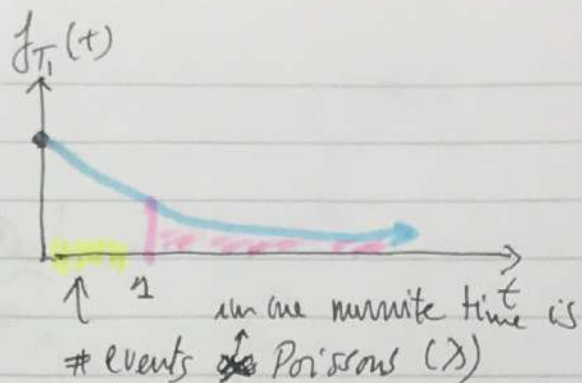 f_{T_1}(t)
1
t
in one munnite time is
# events Poissons (λ)